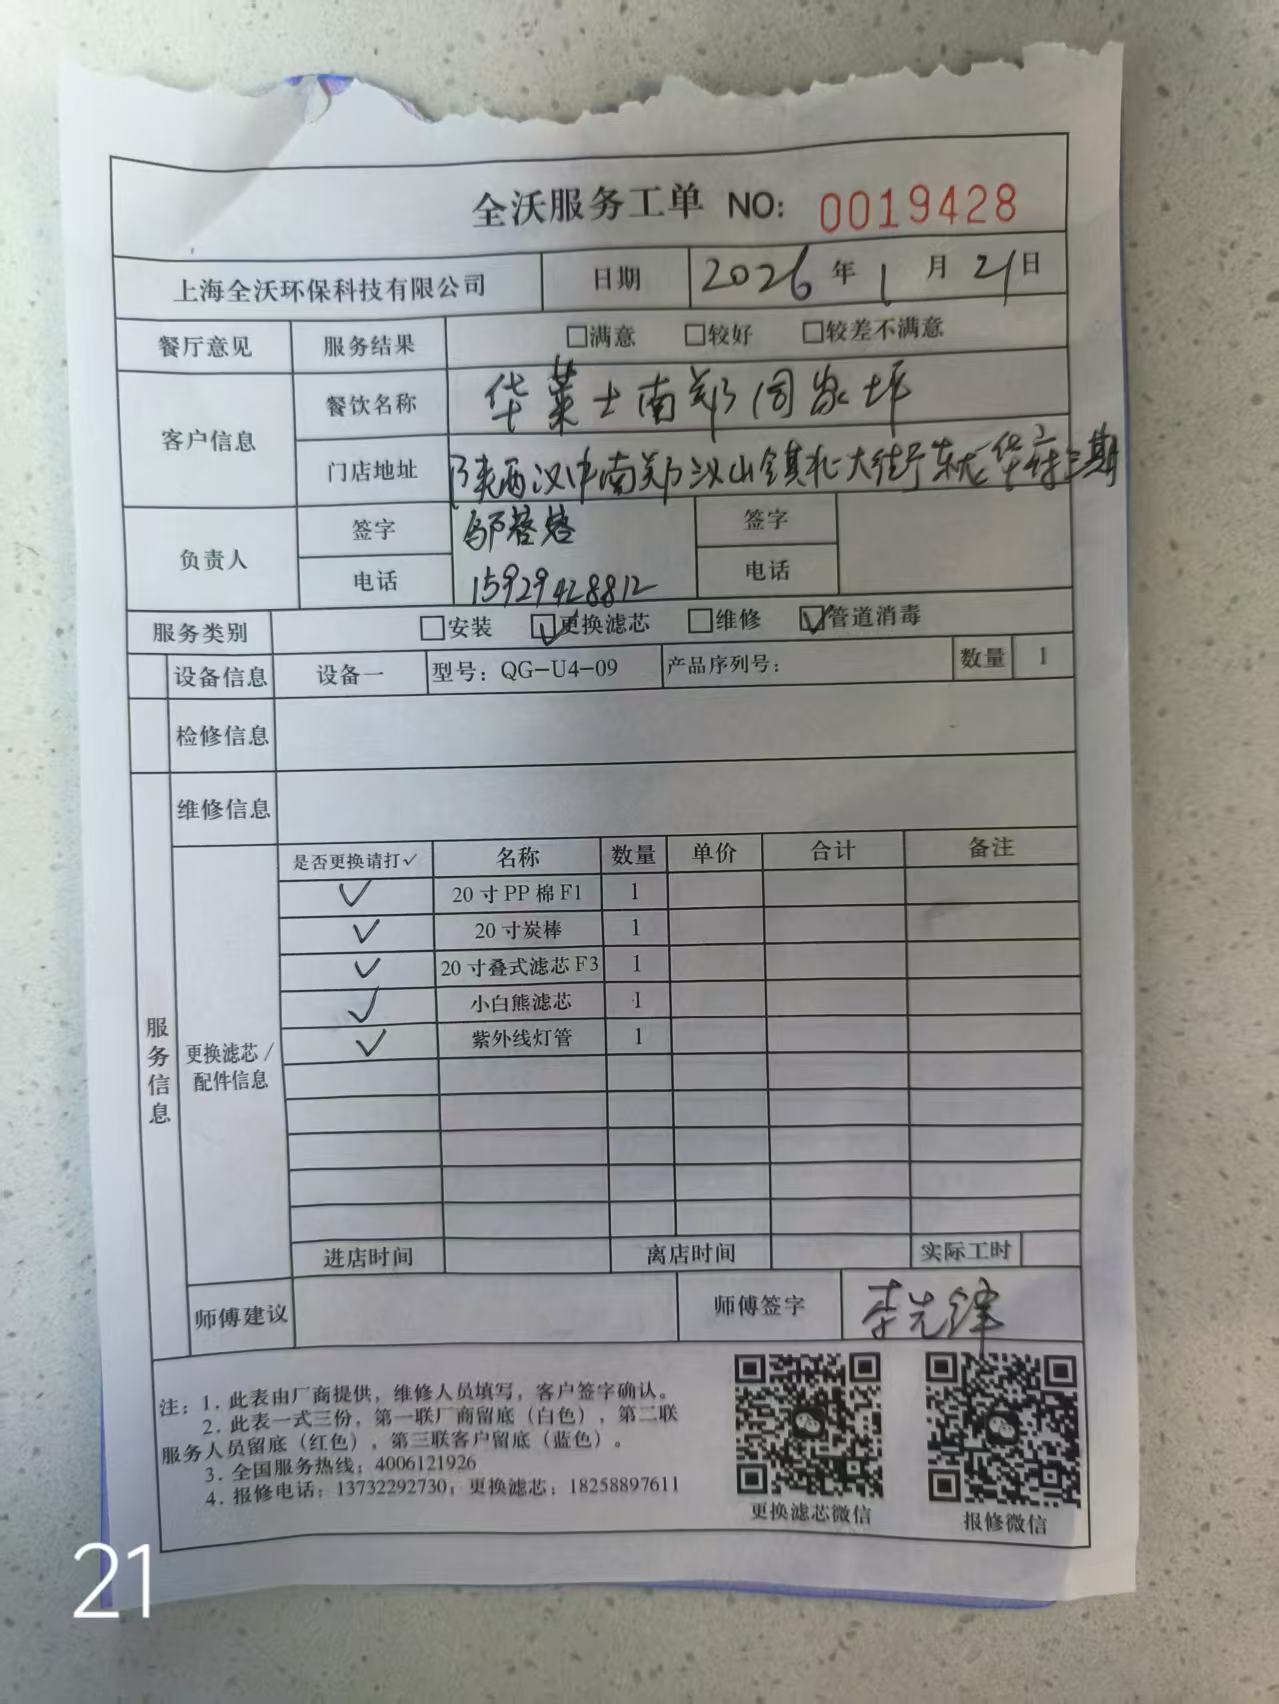 全沃服务工单 NO: 0019428
上海全沃环保科技有限公司 日期 2026 年 1 月 21 日
餐厅意见 服务结果 □满意 □较好 □较差不满意
客户信息 餐饮名称 华莱士南郑周家坪
门店地址 陕西汉中南郑汉山镇北大街 华府三期
负责人 签字 邹 签字
电话 15929428812 电话
服务类别 □安装 ☑更换滤芯 □维修 ☑管道消毒
设备信息 设备一 型号: QG-U4-09 产品序列号: 数量 1
检修信息
维修信息
是否更换请打✓ 名称 数量 单价 合计 备注
✓ 20寸PP棉F1 1
✓ 20寸炭棒 1
✓ 20寸叠式滤芯F3 1
✓ 小白熊滤芯 1
✓ 紫外线灯管 1
服务信息
更换滤芯/
配件信息
进店时间 离店时间 实际工时
师傅建议 师傅签字 李先锋
注: 1. 此表由厂商提供, 维修人员填写, 客户签字确认。
2. 此表一式三份, 第一联厂商留底(白色), 第二联
服务人员留底(红色), 第三联客户留底(蓝色)。
3. 全国服务热线: 4006121926
4. 报修电话: 13732292730; 更换滤芯: 18258897611
更换滤芯微信 报修微信
21